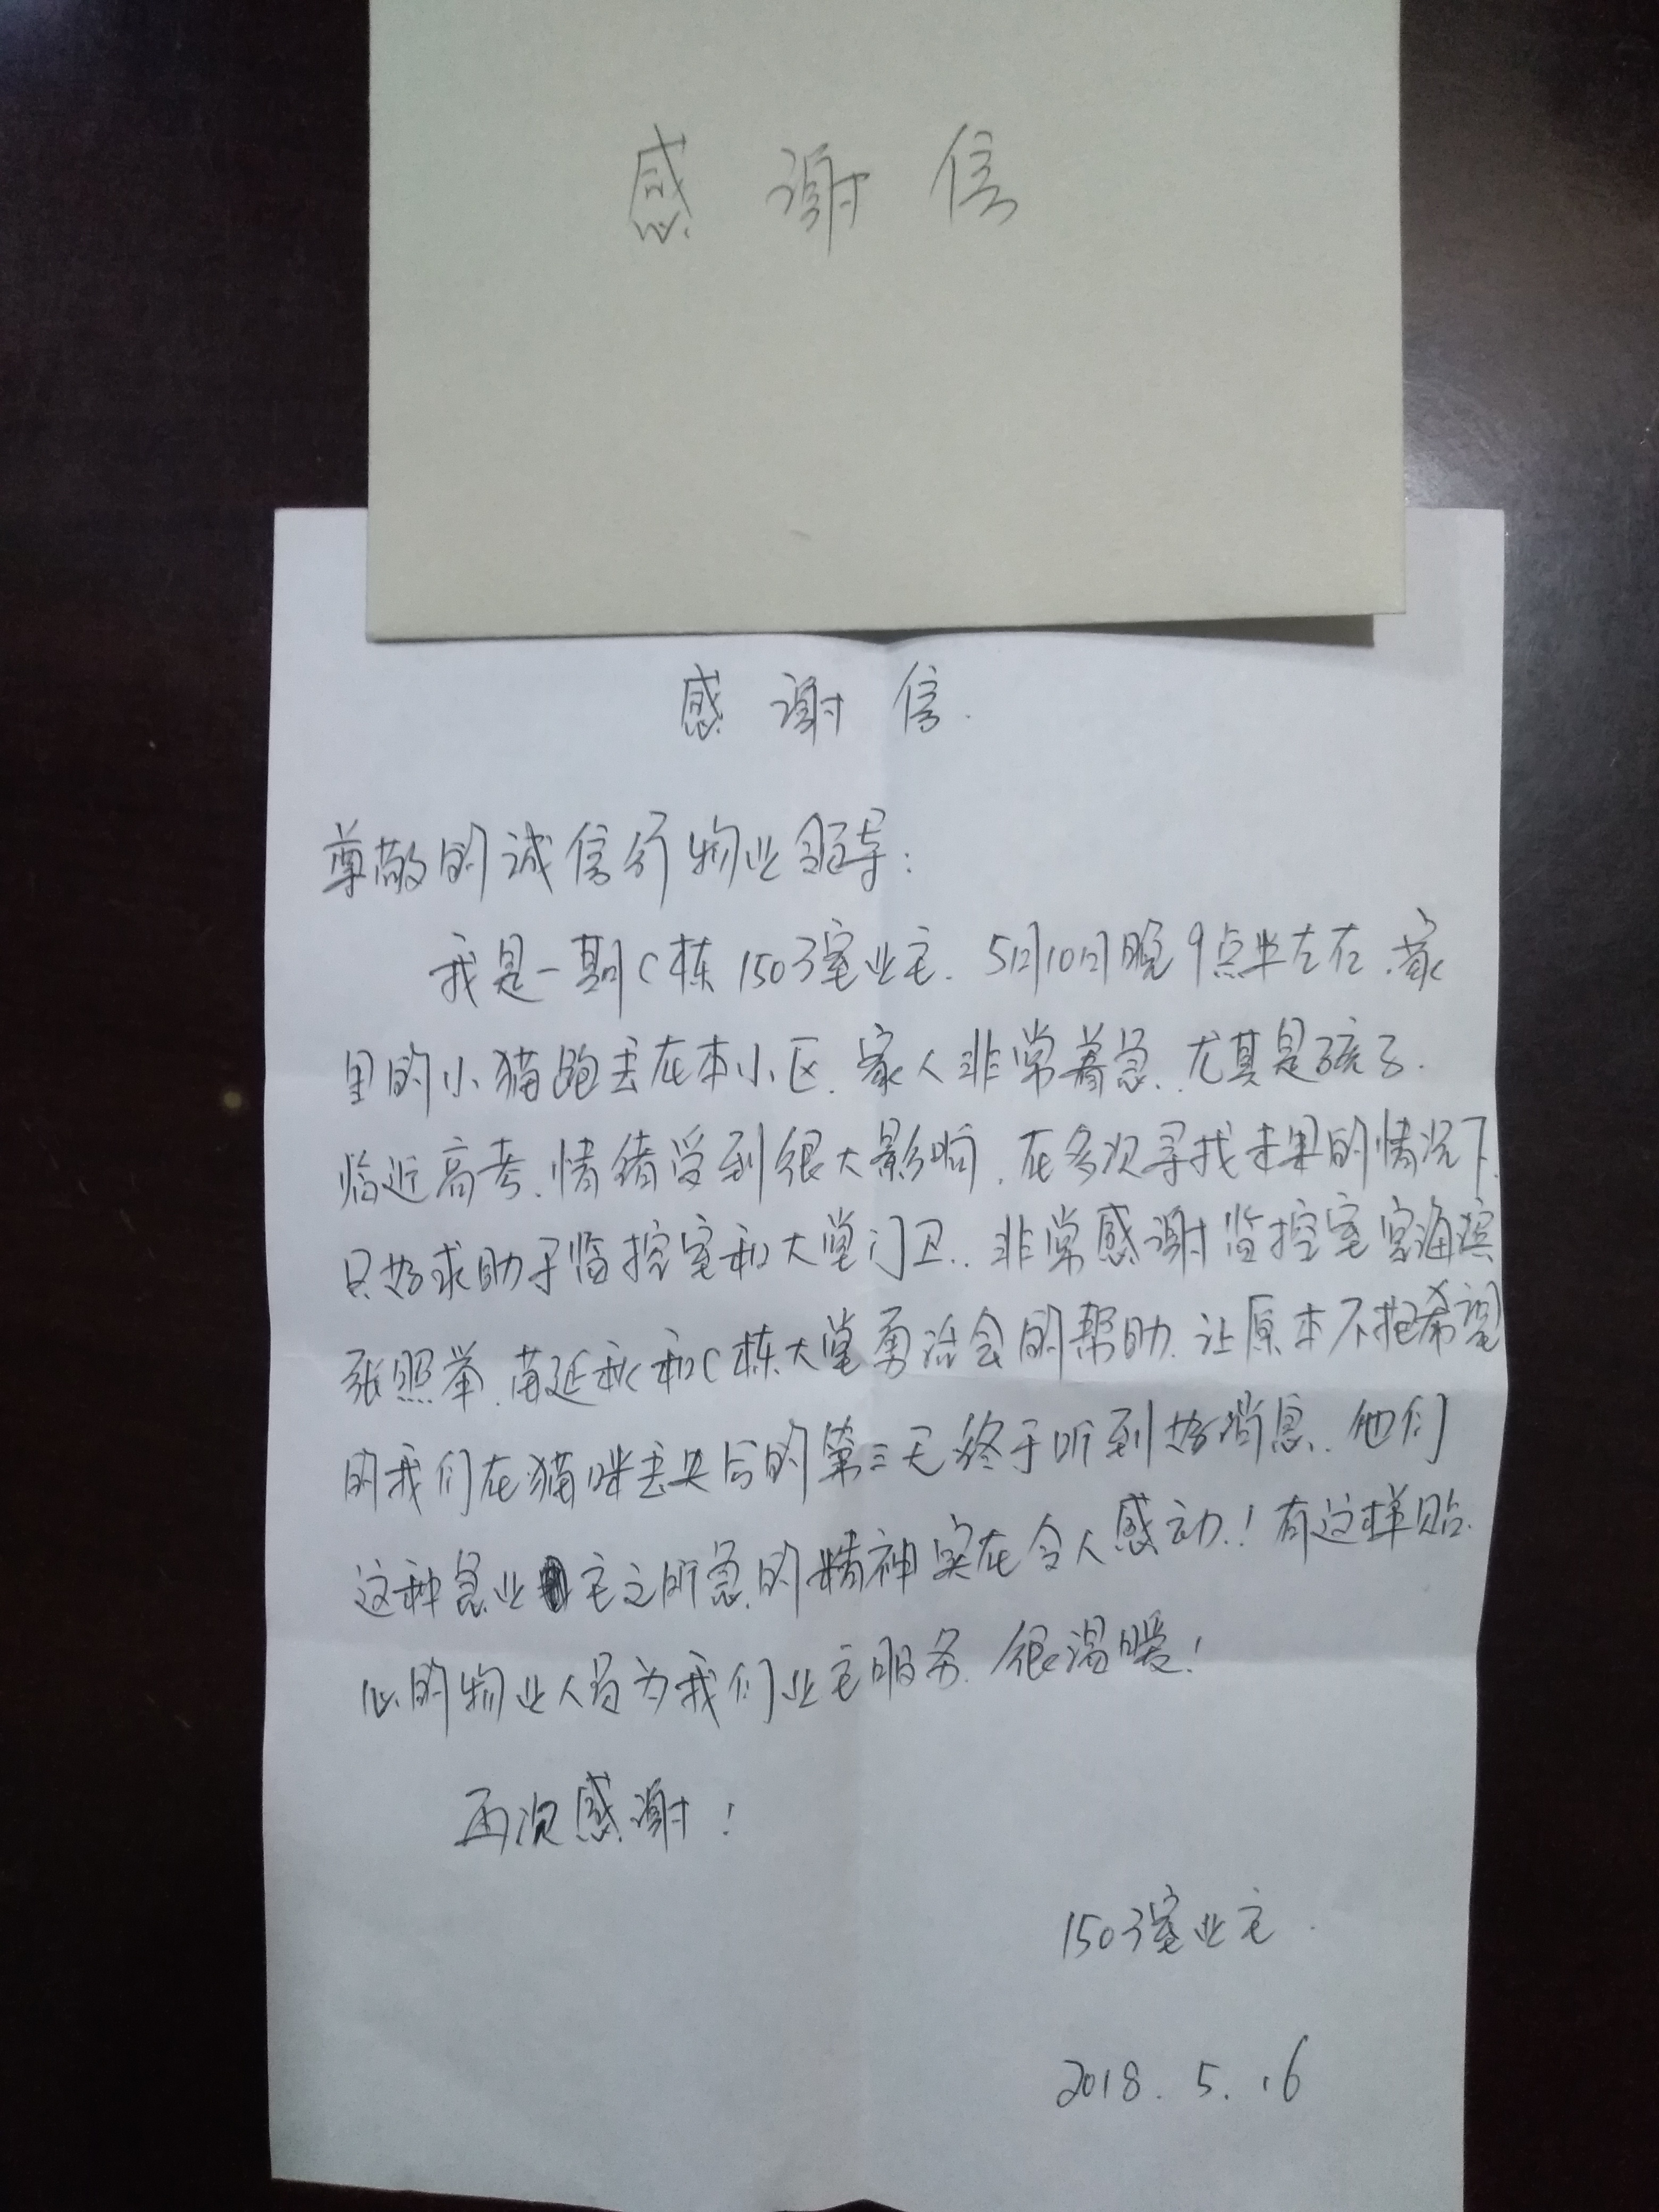 感谢信
感谢信.
尊敬的诚信行物业领导:
我是一期C栋1503室业主.5月10日晚9点半左右.家
里的小猫跑丢在本小区.家人非常着急.尤其是孩子.
临近高考.情绪受到很大影响.在多次寻找未果的情况下.
只好求助于监控室和大堂门卫.非常感谢监控室宫海滨
张照举.苗延永和C栋大堂勇治会的帮助.让原本不抱希望
的我们在猫咪丢失后的第三天终于听到好消息.他们
这种急业主之所急的精神实在令人感动!有这样贴
心的物业人员为我们业主服务.很温暖!
再次感谢!
1503室业主.
2018.5.16